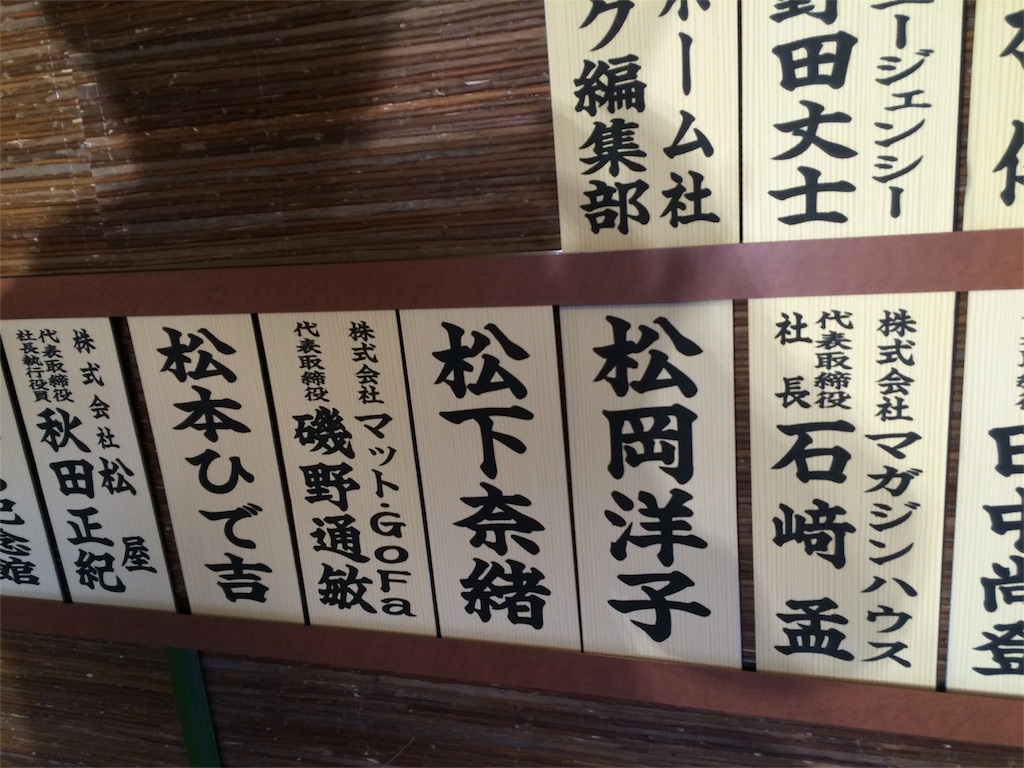 ーム社
ク編集部
ージェンシー
野田丈士
田中尚登
株式会社マガジンハウス
代表取締役
社長
石﨑孟
松岡洋子
松下奈緒
株式会社マット・GOFa
代表取締役
磯野通敏
松本ひで吉
株式会社松屋
代表取締役
社長執行役員
秋田正紀
念館